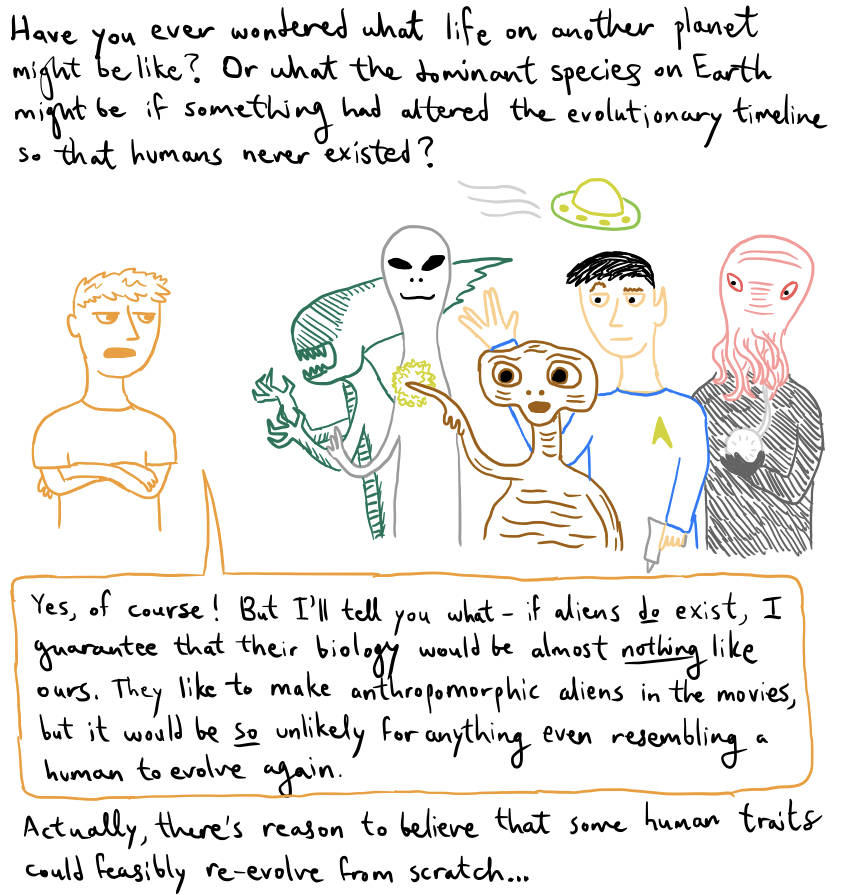 Have you ever wondered what life on another planet
might be like? Or what the dominant species on Earth
might be if something had altered the evolutionary timeline
so that humans never existed?
Yes, of course! But I'll tell you what - if aliens do exist, I
guarantee that their biology would be almost nothing like
ours. They like to make anthropomorphic aliens in the movies,
but it would be so unlikely for anything even resembling a
human to evolve again.
Actually, there's reason to believe that some human traits
could feasibly re-evolve from scratch...